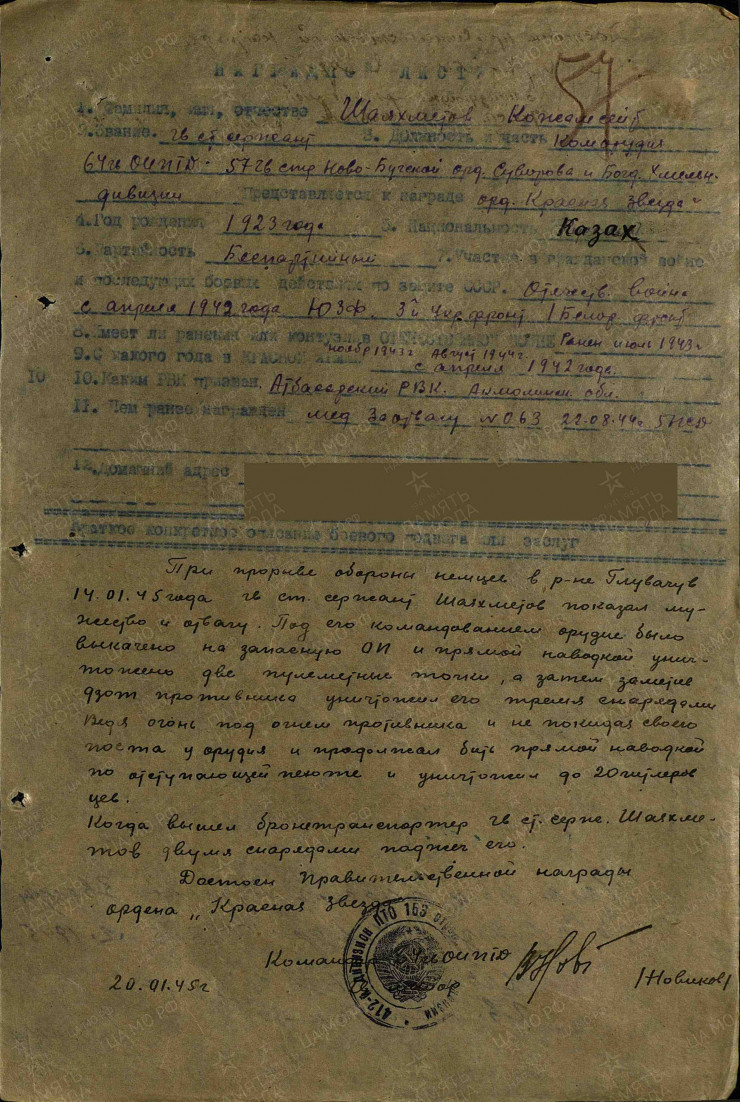 57
НАГРАДНОЙ ЛИСТ
1. Фамилия, имя, отчество Шаяхметов Кожамсеит
2. Звание. гв ст сержант 3. Должность и часть Командир
64 гв ОИПТД. 57 гв стр Ново-Бугской орд. Суворова и Богд. Хмельн.
дивизии Представляется к награде орд. "Красная звезда"
4. Год рождения 1923 года 5. Национальность Казах
6. Партийность Беспартийный 7. Участие в гражданской войне
и последующих боевых действиях по защите СССР. Отечеств. война
с апреля 1942 года ЮЗФ, 3й Укр фронт 1 Белор. фронт
8. Имеет ли ранения или контузии в ОТЕЧЕСТВЕННОЙ ВОЙНЕ Ранен июль 1943 г
ноябр 1943 г. Август 1944 г.
9. С какого года в КРАСНОЙ АРМИИ с апреля 1942 года.
10 10. Каким РВК призван. Атбасарский РВК. Акмолинск. обл.
11. Чем ранее награжден мед За отвагу №063 22.08.44 г 57 гсд
12. Домашний адрес
Краткое конкретное описание боевого подвига или заслуг
При прорыве обороны немцев в р-не Глувачув
14.01.45 года гв ст. сержант Шаяхметов показал му-
жество и отвагу. Под его командованием орудие было
выкачено на запасную ОП и прямой наводкой унич-
тожено две пулеметные точки, а затем заметив
дзот противника уничтожил его тремя снарядами
Ведя огонь под огнем противника и не покидая своего
поста у орудия и продолжал бить прямой наводкой
по отступающей пехоте и уничтожил до 20 гитлеров
цев.
Когда вышел бронетранспортер гв ст. серж. Шаяхме-
тов двумя снарядами поджег его.
Достоен Правительственной награды
ордена "Красная звезда"
Командир 64 гв ОИПТД
20.01.45 г майор /Новиков/
412-й ДИВИЗИОН ПТО 153